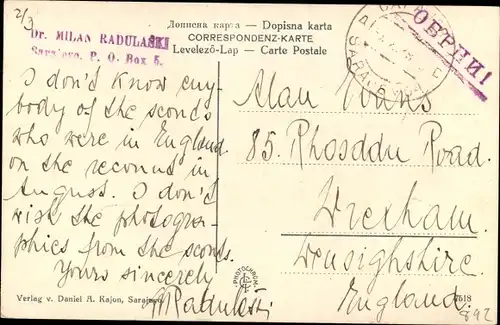 2/3
Dr. MILAN RADULAŠKI
Sarajevo. P. O. Box 5.
Дописна карта – Dopisna karta
CORRESPONDENZ-KARTE
Levelező-Lap – Carte Postale
ОБРНИ!
I don't know eny-
body of the sconds
who were in England
on the reconud in
August. I don't
wish the photogra-
phies from the sconts.
Yours sincerely
MRadulaški
Alan Evans
85. Rhosddu Road.
Wrexham.
Densighshire.
England.
PHOTOCHROM
Verlag v. Daniel A. Kajon, Sarajevo.
7518
892